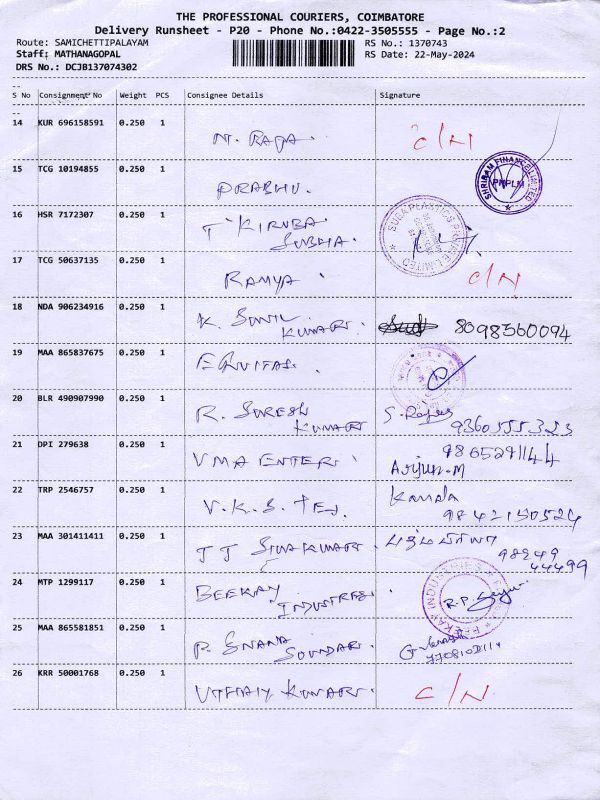 THE PROFESSIONAL COURIERS, COIMBATORE
Delivery Runsheet - P20 - Phone No.:0422-3505555 - Page No.:2
Route: SAMICHETTIPALAYAM RS No.: 1370743
Staff: MATHANAGOPAL RS Date: 22-May-2024
DRS No.: DCJB137074302
S No Consignment No Weight PCS Consignee Details Signature
14 KUR 696158591 0.250 1 N. RAJA. C/N
15 TCG 10194855 0.250 1 PRABHU. SHRIRAM FINANCE LIMITED
16 HSR 7172307 0.250 1 T KIRUBA SUBHA. PRIVATE LIMITED
17 TCG 50637135 0.250 1 RAMYA. C/N
18 NDA 906234916 0.250 1 K. SUNIL KUMAR. 8098560094
19 MAA 865837675 0.250 1 EQUITAS.
20 BLR 490907990 0.250 1 R. SURESH KUMAR 9360555323
21 DPI 279638 0.250 1 VMA ENTER. 9865291144 Arjun.M
22 TRP 2546757 0.250 1 V.K.S. TEJ. Kamala 9842150524
23 MAA 301411411 0.250 1 JJ SIVAKUMAR. 98949 44499
24 MTP 1299117 0.250 1 BEEKAY INDUSTRES. BEEKAY INDUSTRIES R.P.
25 MAA 865581851 0.250 1 P. GNANA SOUNDARI.
26 KRR 50001768 0.250 1 UTHAY KUMAR. C/N